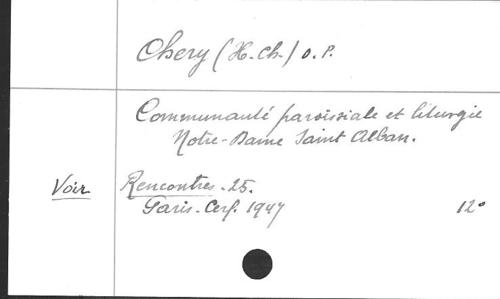 Chery (H.-Ch.) O.P.
Communauté paroissiale et liturgie
Notre-Dame Saint Alban.
Voir Rencontres - 25.
Paris - Cerf. 1947 12°